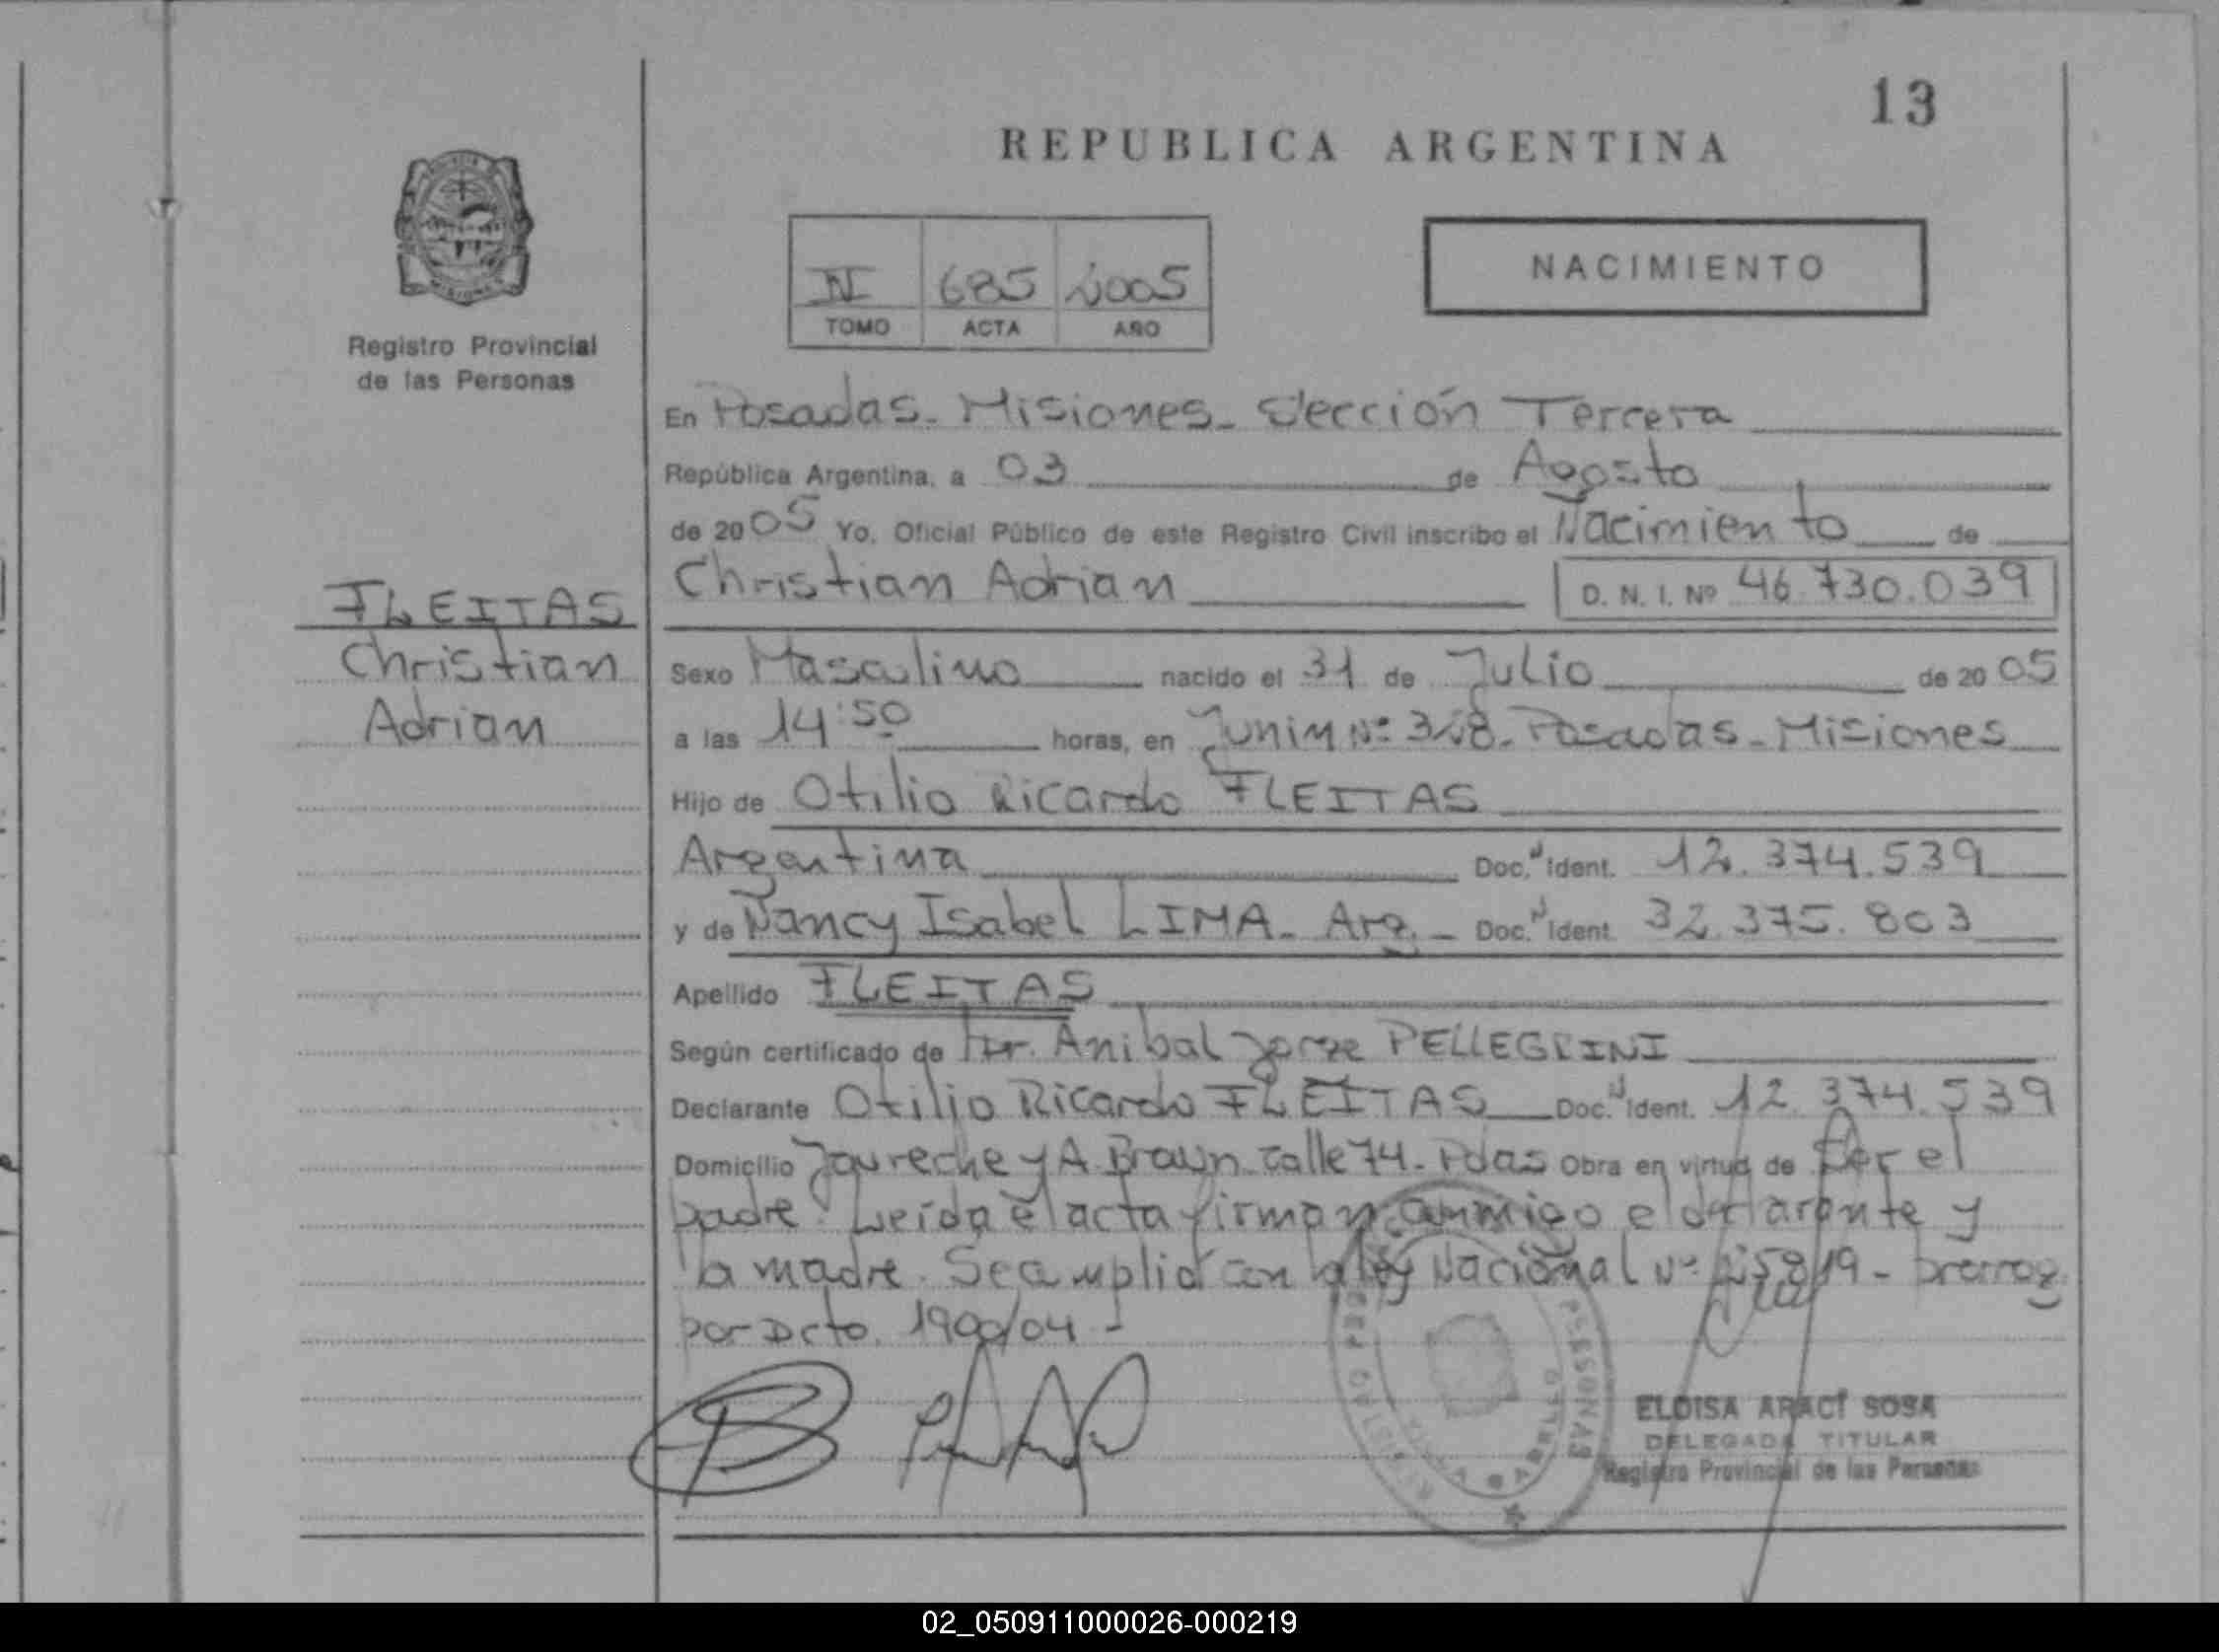 13
REPUBLICA ARGENTINA
NACIMIENTO
IV 685 2005
TOMO ACTA AÑO
Registro Provincial
de las Personas
FLEITAS
Christian
Adrian
En Posadas - Misiones - Sección Tercera
República Argentina, a 03 de Agosto
de 2005 Yo, Oficial Público de este Registro Civil inscribo el Nacimiento de
Christian Adrian D. N. I. Nº 46.730.039
Sexo Masculino nacido el 31 de Julio de 2005
a las 14:50 horas, en Junin Nº Posadas - Misiones
Hijo de Otilio Ricardo FLEITAS
Argentina Doc. N Ident. 12.374.539
y de Nancy Isabel LIMA - Arg. - Doc. N Ident. 32.375.803
Apellido FLEITAS
Según certificado de Anibal Jorge PELLEGRINI
Declarante Otilio Ricardo FLEITAS Doc. N Ident. 12.374.539
Domicilio Jaureche y A. Brown calle 74 - Pdas Obra en virtud de Ser el
padre. Leída el acta firman conmigo el declarante y
la madre. Se cumplió con la Ley Nacional Nº 25.819 - prorrog.
por Dcto. 1900/04 -
ELOISA ARACI SOSA
DELEGADA TITULAR
Registro Provincial de las Personas
02_050911000026-000219